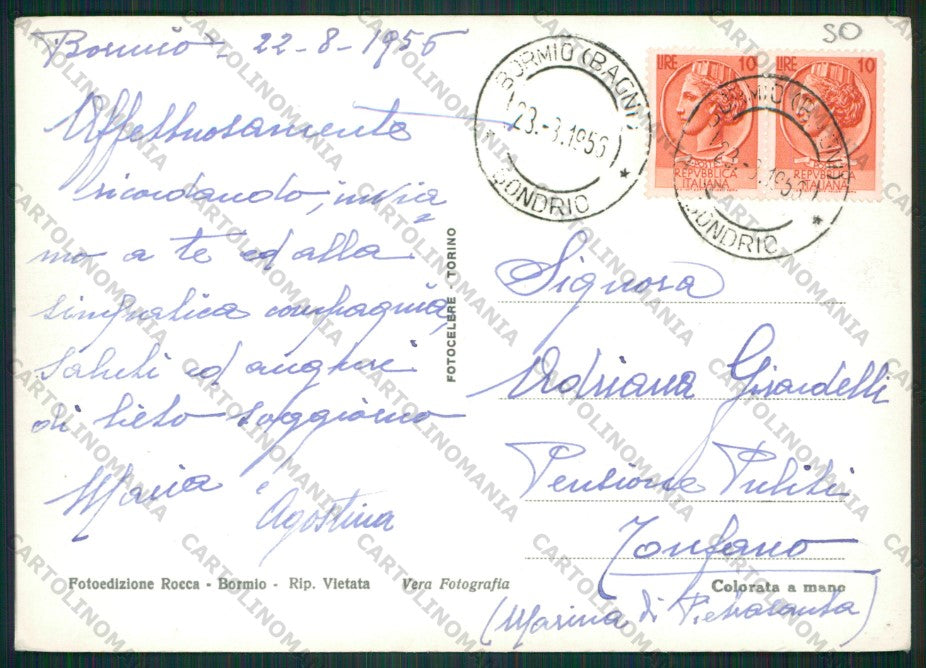 Bormio - 22-8-1956
Affettuosamente
ricordando, invia
mo a te ed alla
simpatica compagnia,
saluti ed auguri
di lieto soggiorno
Maria e
Agostina
Fotoedizione Rocca - Bormio - Rip. Vietata Vera Fotografia
FOTOCELERE - TORINO
SO
BORMIO (BAGNI)
23.-8.1956
SONDRIO
LIRE 10
REPVBBLICA
ITALIANA
LIRE 10
REPVBBLICA
ITALIANA
BORMIO (BAGNI)
23.-8.1956
SONDRIO
Signora
Adriana Girardelli
Pensione Puliti
Tonfano
Colorata a mano
(Marina di Pietrasanta)
CARTOLINOMANIA